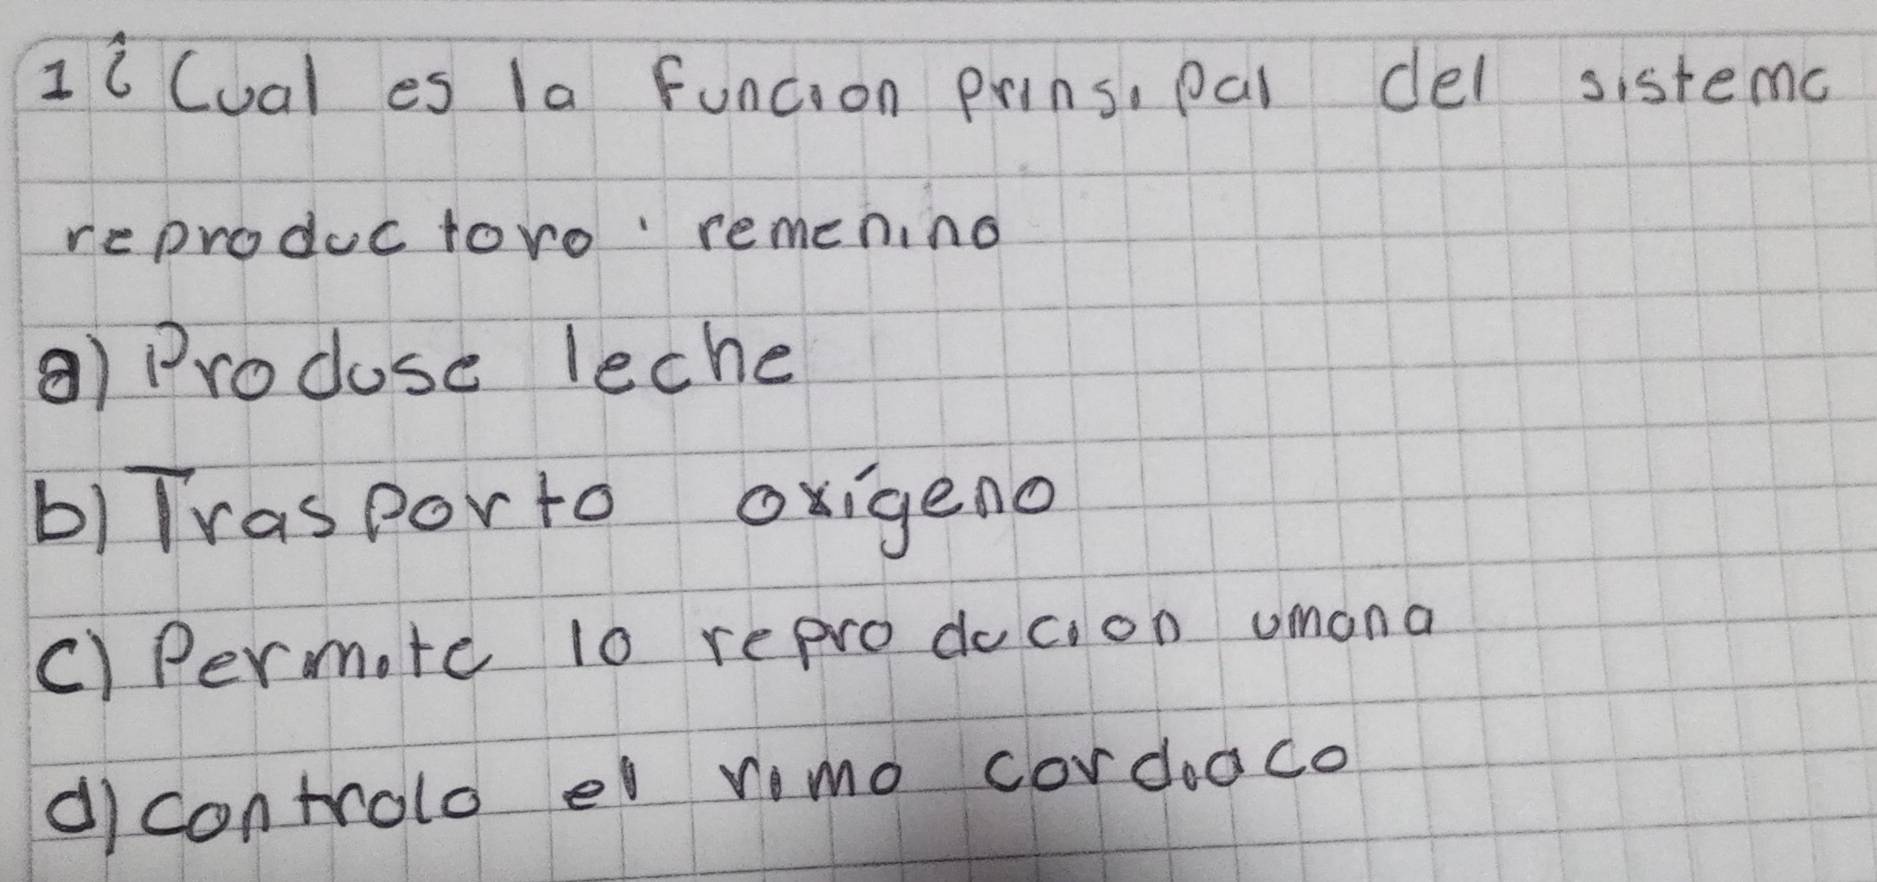 1 ¿Cual es la funcion prinsipal del sistema
reproductoro femenino
a) Produse leche
b) Trasporta oxígeno
c) Permite la reproducion umana
d) controla el rimo cardiaco